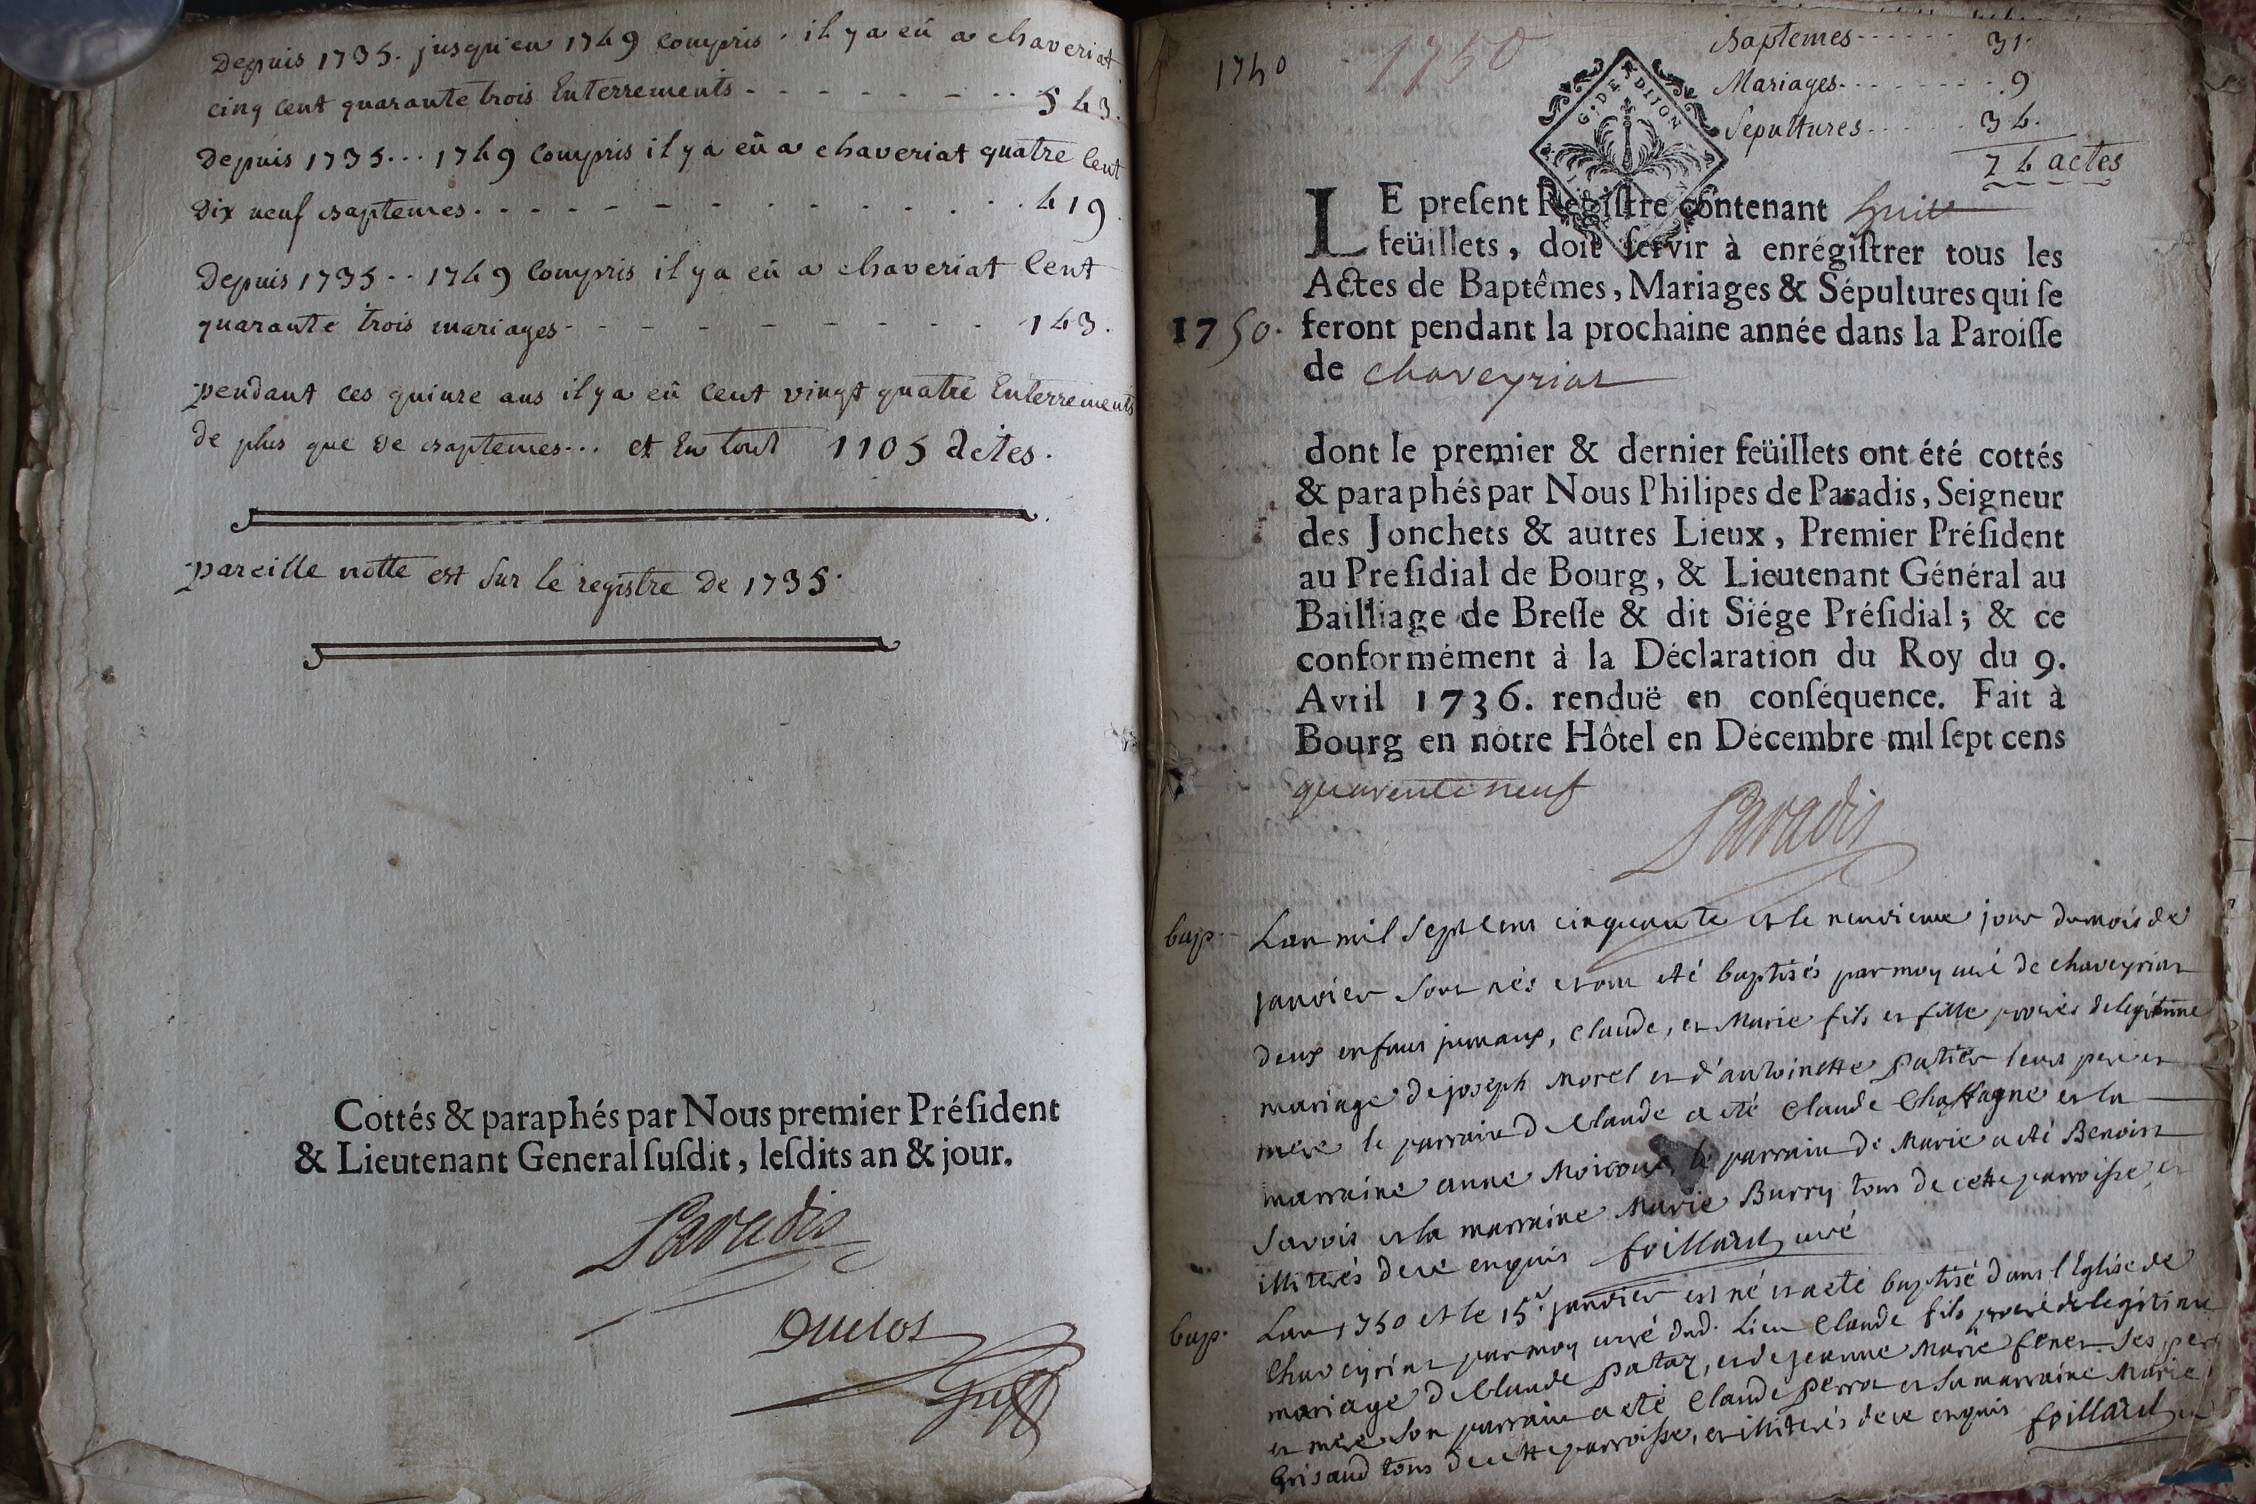 Depuis 1735. jusqu'en 1749 compris. il y a eû a chaveriat
cinq cent quarante trois Enterrements - - - - - - - - 543.
Depuis 1735... 1749 compris il y a eû a chaveriat quatre Cent
Dix neuf baptemes. - - - - - - - - - - 419.
Depuis 1735.. 1749 Compris il y a eû a chaveriat Cent
quarante trois mariages - - - - - - - - 143.
pendant ces quinze ans il y a eû cent vingt quatre Enterrements
de plus que de baptemes... et En tout 1105 actes.
pareille notte est sur le registre de 1735.
Cottés & paraphés par Nous premier Préſident
& Lieutenant General ſuſdit, leſdits an & jour.
Paradis
Duclos
Greff
1750
1750
Baptemes - - - - - 31.
Mariages - - - - - - - 9
Sepultures - - - - - 34.
74 actes
G. DE DIJON
LE preſent Regiſtre contenant huit
feüillets, doit ſervir à enrégiſtrer tous les
Actes de Baptêmes, Mariages & Sépultures qui ſe
1750. feront pendant la prochaine année dans la Paroiſſe
de chaveyriat
dont le premier & dernier feüillets ont été cottés
& paraphés par Nous Philipes de Paradis, Seigneur
des Jonchets & autres Lieux, Premier Préſident
au Preſidial de Bourg, & Lieutenant Général au
Bailliage de Breſſe & dit Siége Préſidial; & ce
conformément à la Déclaration du Roy du 9.
Avril 1736. renduë en conſéquence. Fait à
Bourg en nôtre Hôtel en Décembre mil ſept cens
quarente neuf
Paradis
bap. Lan mil sept cent cinquante et le neuvieme jour du mois de
janvier sont nés et ont eté baptisés par moy curé de chaveyriat
deux enfans jumaux, Claude, et Marie fils et fille procréés de legitime
mariage de joseph Morel et d'antoinette patier leurs pere et
mere le parrain de Claude a eté Claude Chassagne et la
marraine anne le parrain de Marie a eté Benoist
Savois et la marraine Marie Burry tous de cette parroisse, et
illiterés de ce enquis foillard curé
bap. Lan 1750 et le 15e. janvier est né et a eté baptisé dans l'Eglise de
Chaveyriat par moy curé dud. Lieu Claude fils procréé de legitime
mariage de Claude pataz, et de jeanne Marie ses pere
et mere son parrain a eté Claude perrot et sa marraine Marie
Grisaud tous de cette parroisse, et illiterés de ce enquis foillard